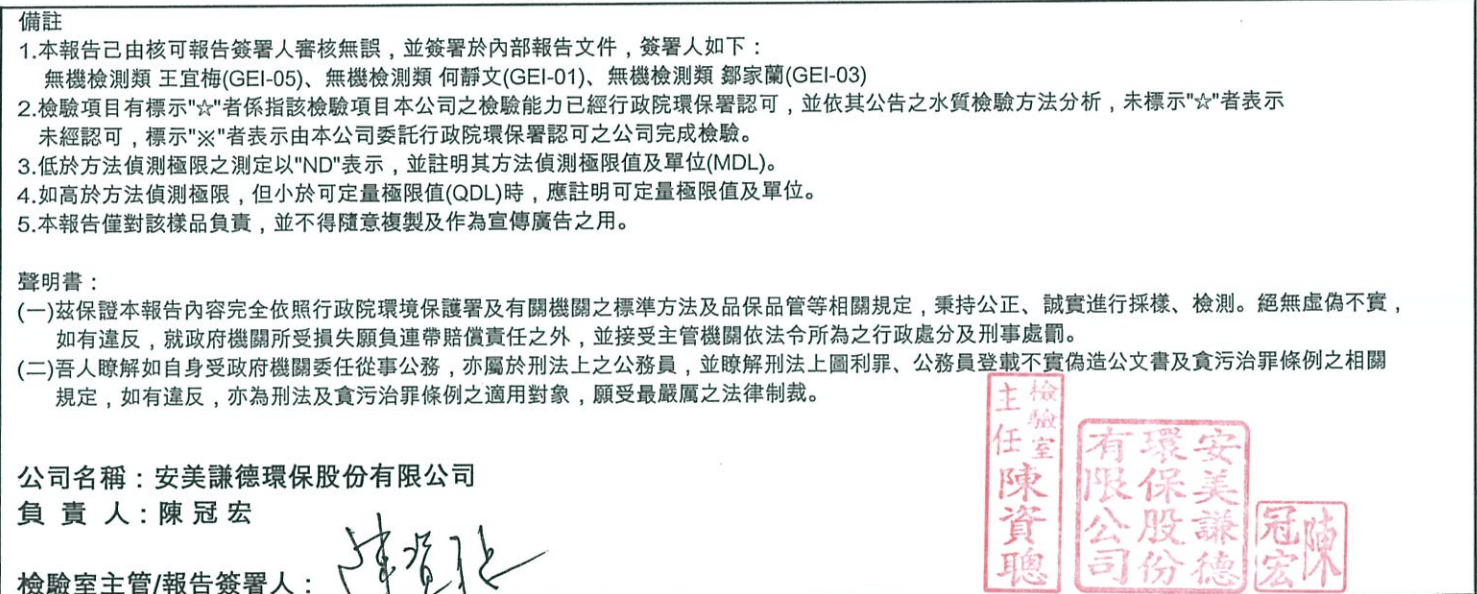 備註
1.本報告已由核可報告簽署人審核無誤，並簽署於內部報告文件，簽署人如下：
無機檢測類 王宜梅(GEI-05)、無機檢測類 何靜文(GEI-01)、無機檢測類 鄒家蘭(GEI-03)
2.檢驗項目有標示"☆"者係指該檢驗項目本公司之檢驗能力已經行政院環保署認可，並依其公告之水質檢驗方法分析，未標示"☆"者表示
未經認可，標示"※"者表示由本公司委託行政院環保署認可之公司完成檢驗。
3.低於方法偵測極限之測定以"ND"表示，並註明其方法偵測極限值及單位(MDL)。
4.如高於方法偵測極限，但小於可定量極限值(QDL)時，應註明可定量極限值及單位。
5.本報告僅對該樣品負責，並不得隨意複製及作為宣傳廣告之用。
聲明書：
(一)茲保證本報告內容完全依照行政院環境保護署及有關機關之標準方法及品保品管等相關規定，秉持公正、誠實進行採樣、檢測。絕無虛偽不實，
如有違反，就政府機關所受損失願負連帶賠償責任之外，並接受主管機關依法令所為之行政處分及刑事處罰。
(二)吾人瞭解如自身受政府機關委任從事公務，亦屬於刑法上之公務員，並瞭解刑法上圖利罪、公務員登載不實偽造公文書及貪污治罪條例之相關
規定，如有違反，亦為刑法及貪污治罪條例之適用對象，願受最嚴厲之法律制裁。
公司名稱：安美謙德環保股份有限公司
負 責 人：陳 冠 宏
檢驗室主管/報告簽署人：陳資聰
檢驗室
主任陳資聰
安美謙德
環保股份
有限公司
陳
冠宏